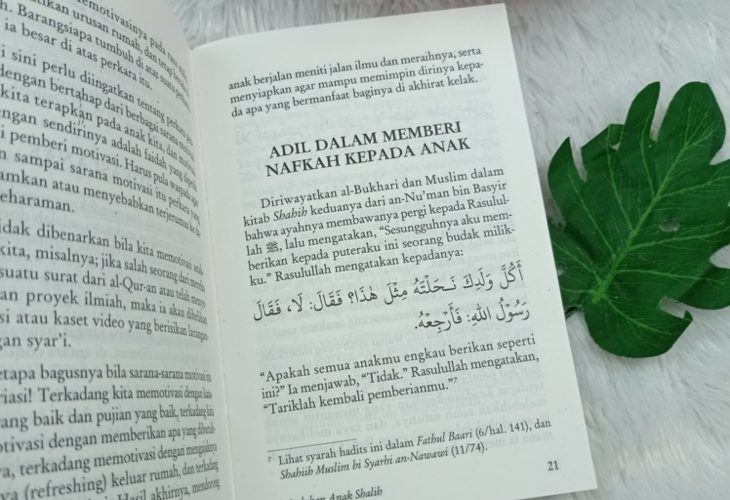 emotivasinya pada saat
tikan urusan rumah, dan tetap
h. Barangsiapa tumbuh di atas suatu perkara
ia besar di atas perkara itu.
i sini perlu diingatkan tentang perkara
dengan bertahap dari berbagai sarana
kita terapkan pada anak kita, dan motivasi
engan sendirinya adalah faidah yang dipetik
i pemberi motivasi. Harus pula waspada agar
n sampai sarana motivasi itu perkara yang
amkan atau menyebabkan terjerumus ke
eharaman.
idak dibenarkan bila kita memotivasi anak
kita, misalnya; jika salah seorang dari mereka
suatu surat dari al-Qur-an atau telah
an proyek ilmiah, maka ia akan dibelikan
si atau kaset video yang berisikan larangan
gan syar'i.
etapa bagusnya bila sarana-sarana motivasi ini
riasi! Terkadang kita memotivasi dengan
yang baik dan pujian yang baik, terkadang kita
otivasi dengan memberikan apa yang
ya, terkadang memotivasi dengan mengajaknya
n (refreshing) keluar rumah, dan terkadang
Hasil akhirnya, mendorong
anak berjalan meniti jalan ilmu dan meraihnya, serta
menyiapkan agar mampu memimpin dirinya kepa-
da apa yang bermanfaat baginya di akhirat kelak.
ADIL DALAM MEMBERI
NAFKAH KEPADA ANAK
Diriwayatkan al-Bukhari dan Muslim dalam
kitab Shahih keduanya dari an-Nu'man bin Basyir
bahwa ayahnya membawanya pergi kepada Rasulul-
lah ﷺ, lalu mengatakan, “Sesungguhnya aku mem-
berikan kepada puteraku ini seorang budak milik-
ku.” Rasulullah mengatakan kepadanya:
أَكُلَّ وَلَدِكَ نَحَلْتَهُ مِثْلَ هٰذَا؟ فَقَالَ: لَا، فَقَالَ
رَسُوْلُ اللهِ: فَأَرْجِعْهُ.
“Apakah semua anakmu engkau berikan seperti
ini?” Ia menjawab, “Tidak.” Rasulullah mengatakan,
“Tariklah kembali pemberianmu.”⁷
⁷ Lihat syarah hadits ini dalam Fathul Baari (6/hal. 141), dan
Shahiih Muslim bi Syarhi an-Nawawi (11/74).
21
Anak Shalih